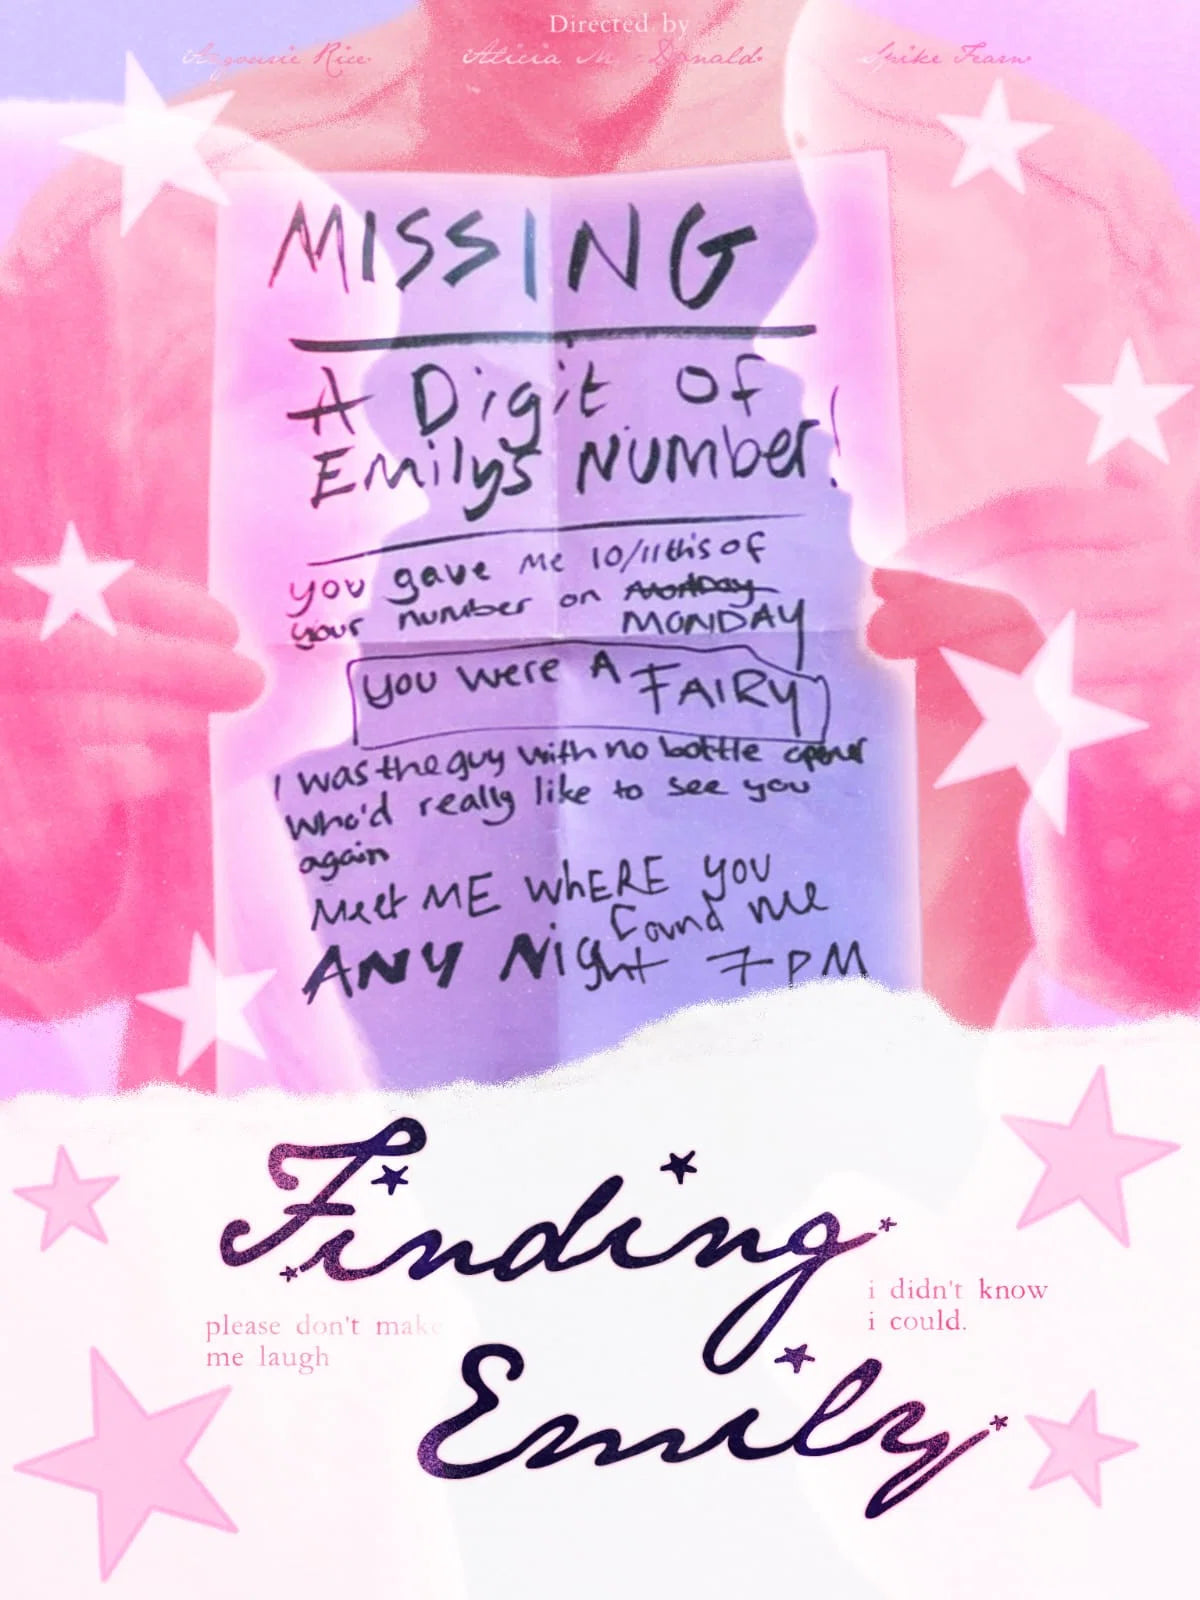 Directed by
Angourie Rice Alicia MacDonald Spike Fearn
MISSING
A Digit Of
Emilys Number!
you gave me 10/11ths of
your number on MONDAY
MONDAY
you were A FAIRY
I was the guy with no bottle opener
who'd really like to see you
again
Meet ME WhERE you
found me
ANY Night 7PM
Finding
i didn't know
i could.
please don't make
me laugh
Emily